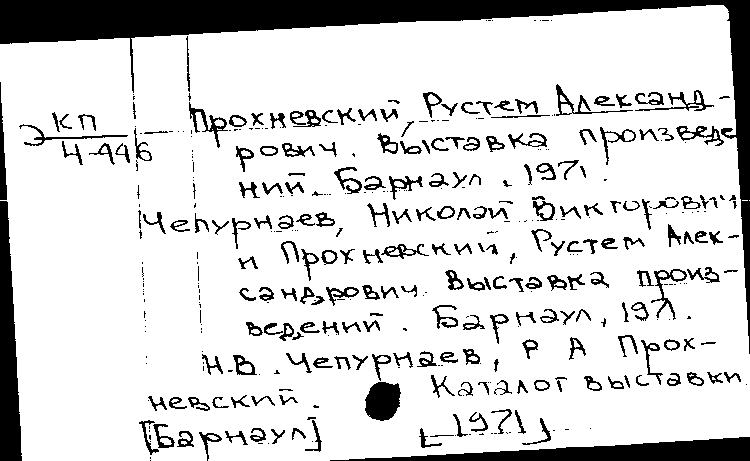 Э КП Прохневский, Рустем Александ-
Ч-446 рович. Выставка произведе
ний. Барнаул. 1971.
Чепурнаев, Николай Викторович
и Прохневский, Рустем Алек-
сандрович. Выставка произ-
ведений. Барнаул, 1971.
Н.В. Чепурнаев, Р А Прох-
невский. Каталог выставки
[Барнаул] [1971]